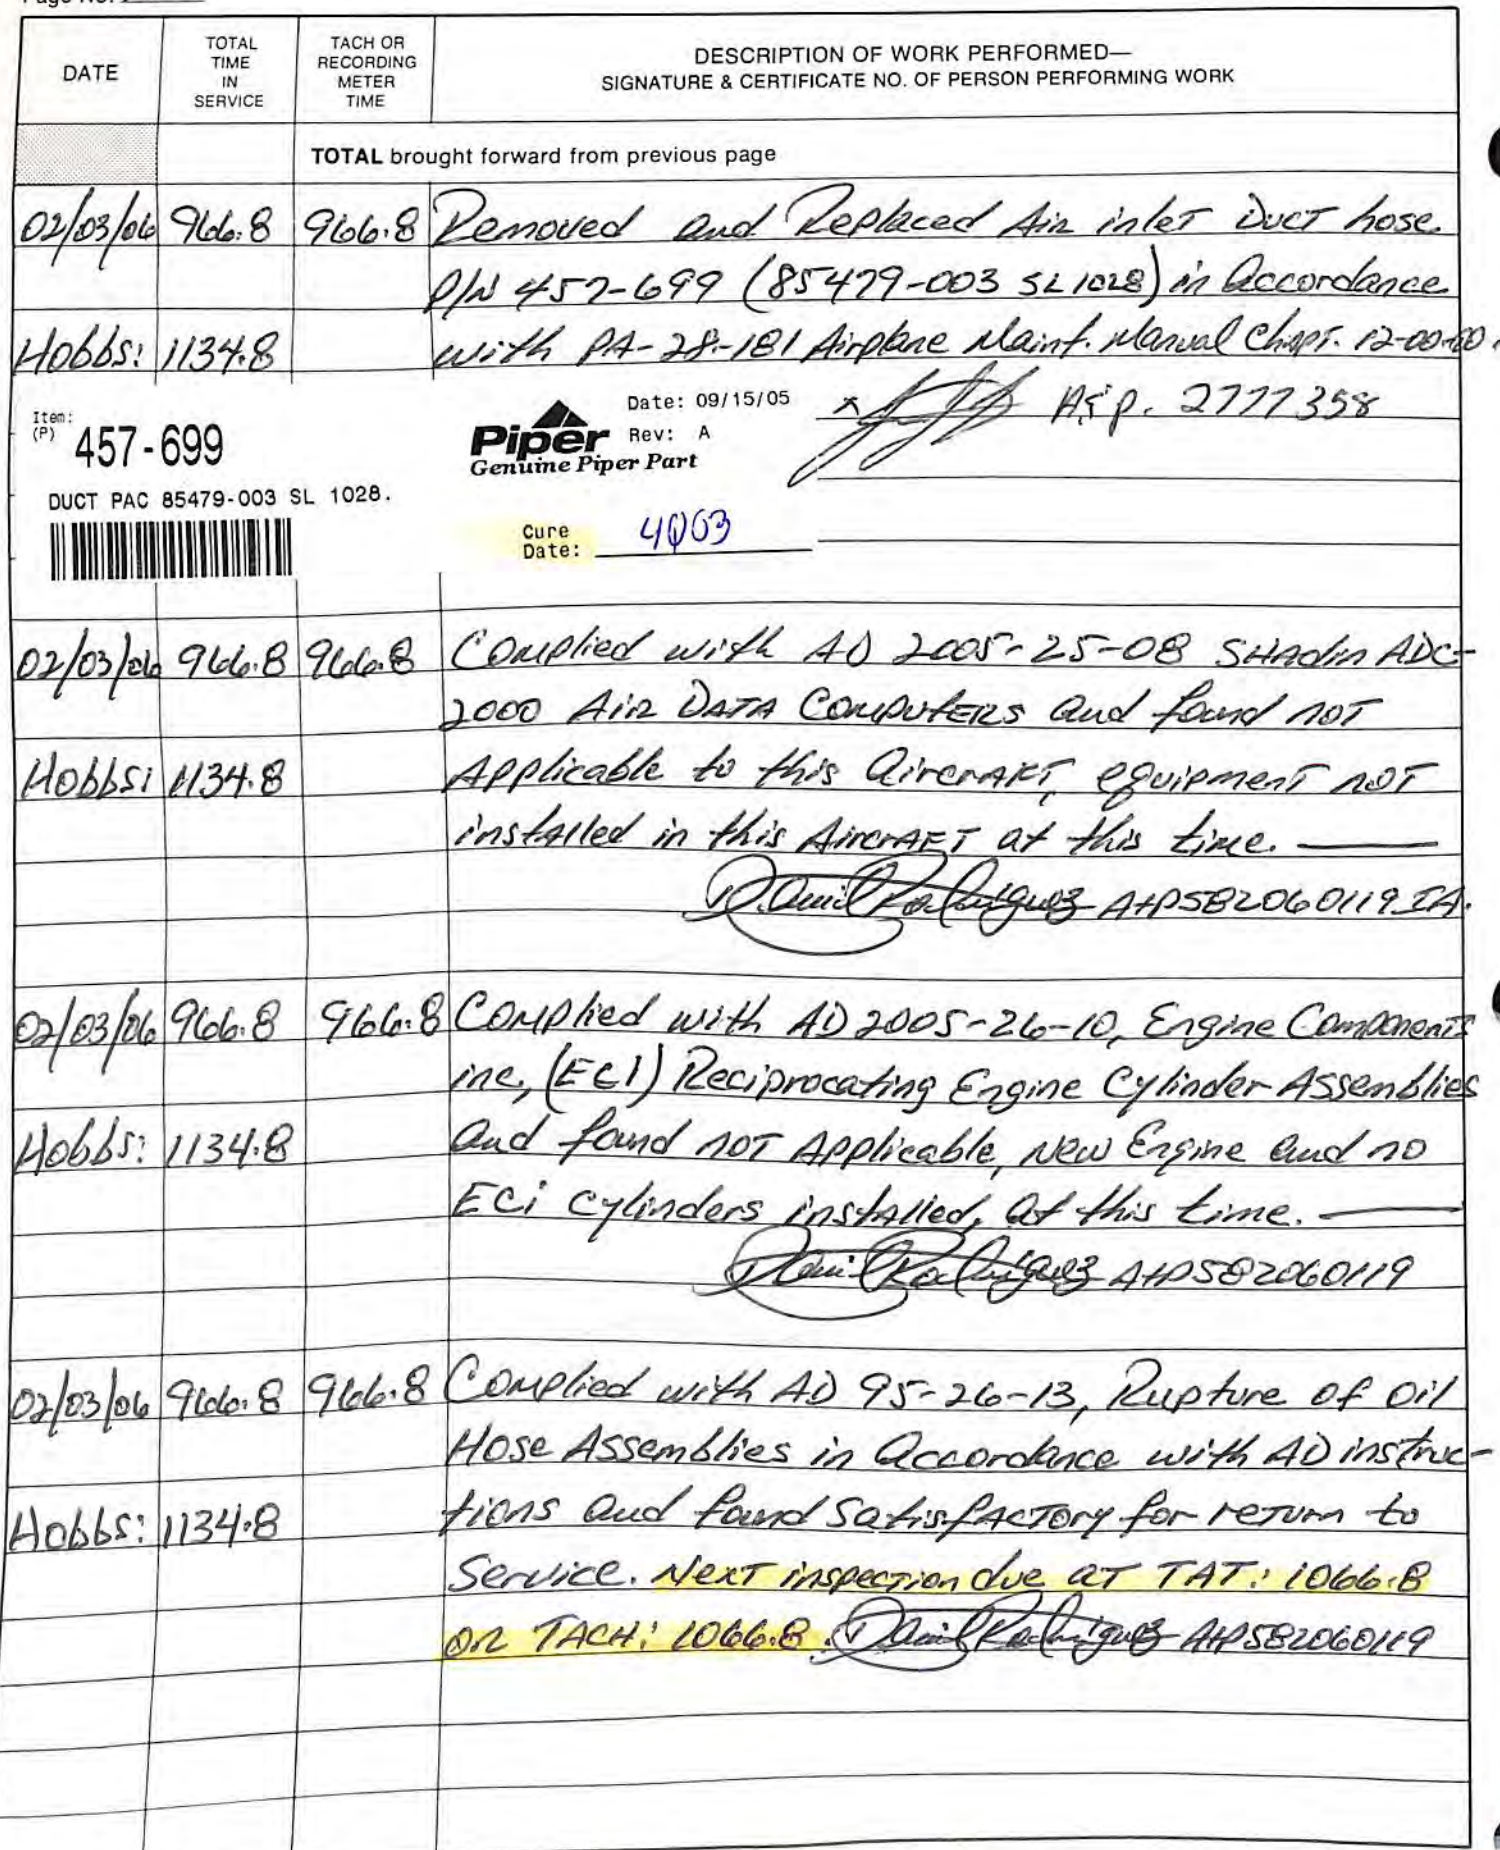 DATE
TOTAL TIME IN SERVICE
TACH OR RECORDING METER TIME
DESCRIPTION OF WORK PERFORMED—
SIGNATURE & CERTIFICATE NO. OF PERSON PERFORMING WORK
TOTAL brought forward from previous page
02/03/06 966.8 966.8 Removed and Replaced Air inlet Duct hose
P/N 457-699 (85479-003 SL1028) in Accordance
Hobbs: 1134.8 with PA-28-181 Airplane Maint. Manual Chapt. 12-00-00.
A&P. 2777358
Item:
(P) 457-699
DUCT PAC 85479-003 SL 1028.
Piper
Genuine Piper Part
Date: 09/15/05
Rev: A
Cure
Date: 4Q03
02/03/06 966.8 966.8 Complied with AD 2005-25-08 SHAdin ADC-
2000 Air DATA COMPUTERS and found NOT
Hobbs: 1134.8 Applicable to this AircrAFT, equipment NOT
installed in this AircrAFT at this time.
Daniel Rodriguez A+P582060119IA.
02/03/06 966.8 966.8 Complied with AD 2005-26-10, Engine Components
inc, (ECI) Reciprocating Engine Cylinder Assemblies
Hobbs: 1134.8 and found NOT Applicable, New Engine and no
ECi cylinders installed, at this time.
Daniel Rodriguez A+P582060119
02/03/06 966.8 966.8 Complied with AD 95-26-13, Rupture of oil
Hose Assemblies in Accordance with AD instruc-
Hobbs: 1134.8 tions and found SatisfACTORY for reTurn to
Service. NexT inspecTion due at TAT: 1066.8
or TACH: 1066.8. Daniel Rodriguez A+P582060119